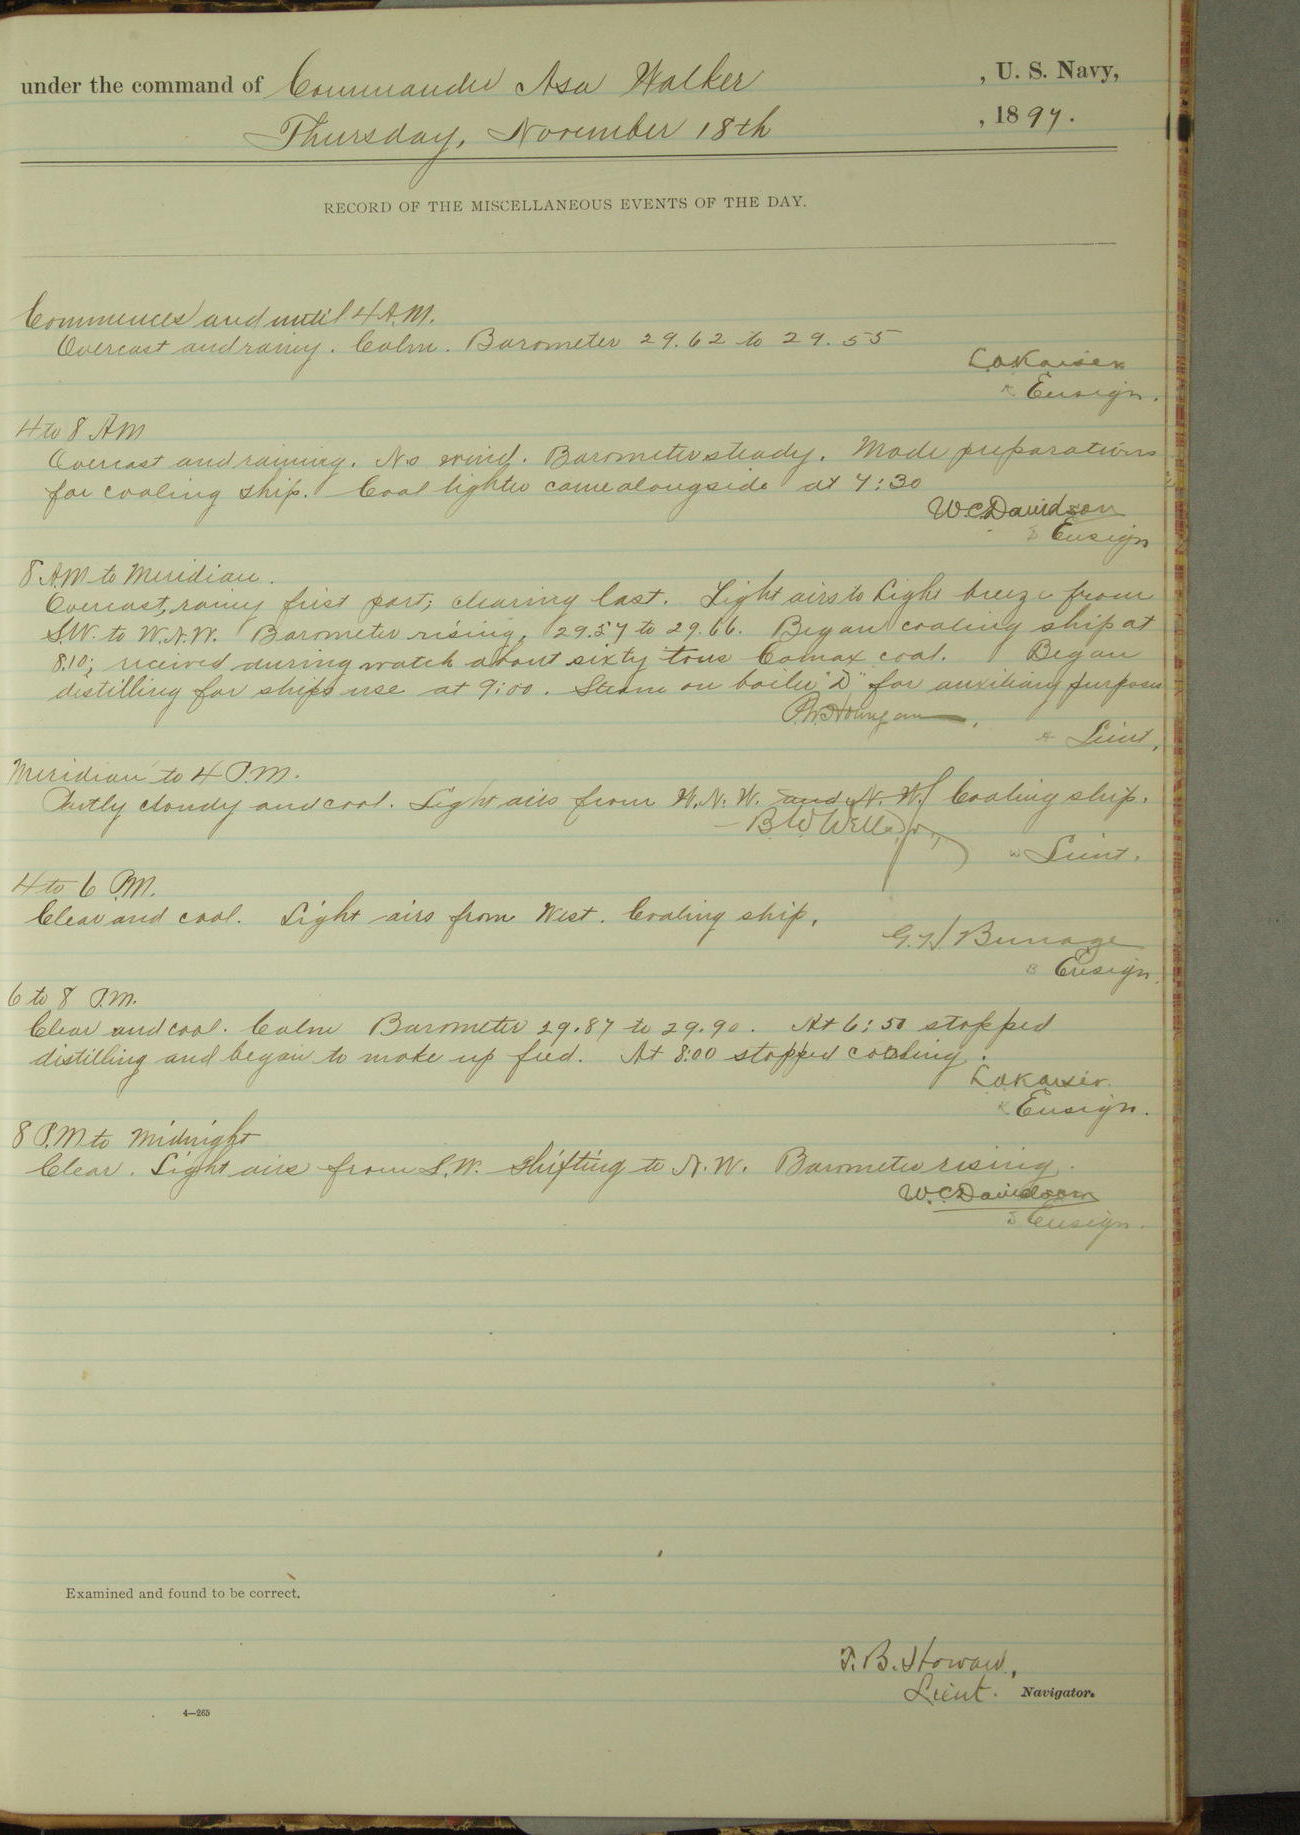 under the command of Commander Asa Walker , U. S. Navy,
Thursday, November 18th , 1897.
RECORD OF THE MISCELLANEOUS EVENTS OF THE DAY.
Commences and until 4 A.M.
Overcast and rainy. Calm. Barometer 29.62 to 29.55
L.A. Kaiser
Ensign.
4 to 8 AM
Overcast and raining. No wind. Barometer steady. Made preparations
for coaling ship. Coal lighter came alongside at 7:30
W.C. Davidson
Ensign
8 A.M to Meridian.
Overcast, rainy first part; clearing last. Light airs to Light breeze from
S.W. to W.N.W. Barometer rising, 29.57 to 29.66. Began coaling ship at
8.10; received during watch about sixty tons Comax coal. Began
distilling for ships use at 9:00. Steam on boiler "D" for auxiliary purposes
Lieut.
Meridian to 4 P.M.
Partly cloudy and cool. Light airs from W.N.W. and N.W. Coaling ship.
B W Wells Jr.,
Lieut.
4 to 6 P.M.
Clear and cool. Light airs from West. Coaling ship.
G.H. Burrage
Ensign.
6 to 8 P.M.
Clear and cool. Calm Barometer 29.87 to 29.90. At 6:50 stopped
distilling and began to make up feed. At 8:00 stopped coaling.
L A Kaiser.
Ensign.
8 P.M to Midnight
Clear. Light airs from S.W. shifting to N.W. Barometer rising.
W.C. Davidson
Ensign.
Examined and found to be correct.
T. B. Howard,
Lieut. Navigator.
4—265